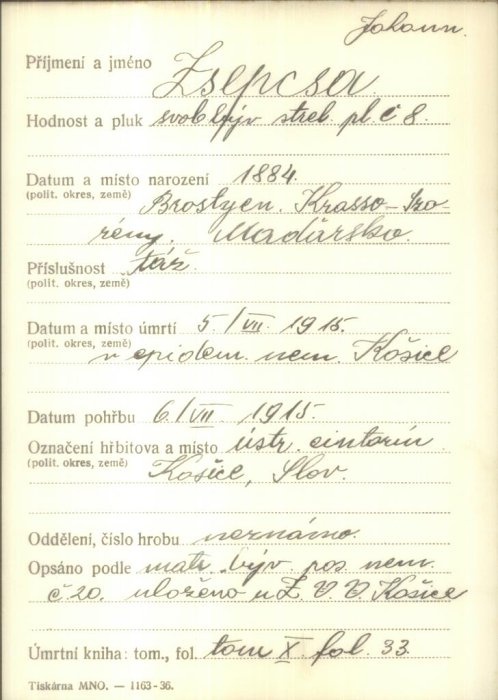 Johann.
Příjmení a jméno Zsepcsa
Hodnost a pluk svob býv střel. pl. č 8.
Datum a místo narození 1884.
(polit. okres, země) Brostyen. Krasso-Szo-
rény. Maďarsko.
Příslušnost táž.
(polit. okres, země)
Datum a místo úmrtí 5./VII. 1915.
(polit. okres, země) v epidem. nem. Košice
Datum pohřbu 6./VII 1915.
Označení hřbitova a místo ústr. cintorín
(polit. okres, země) Košice, Slov.
Oddělení, číslo hrobu neznámo.
Opsáno podle matr. býv. pos. nem.
č. 20. uloženo u Z. V. V. Košice
Úmrtní kniha: tom., fol. tom X. fol. 33.
Tiskárna MNO. — 1163-36.